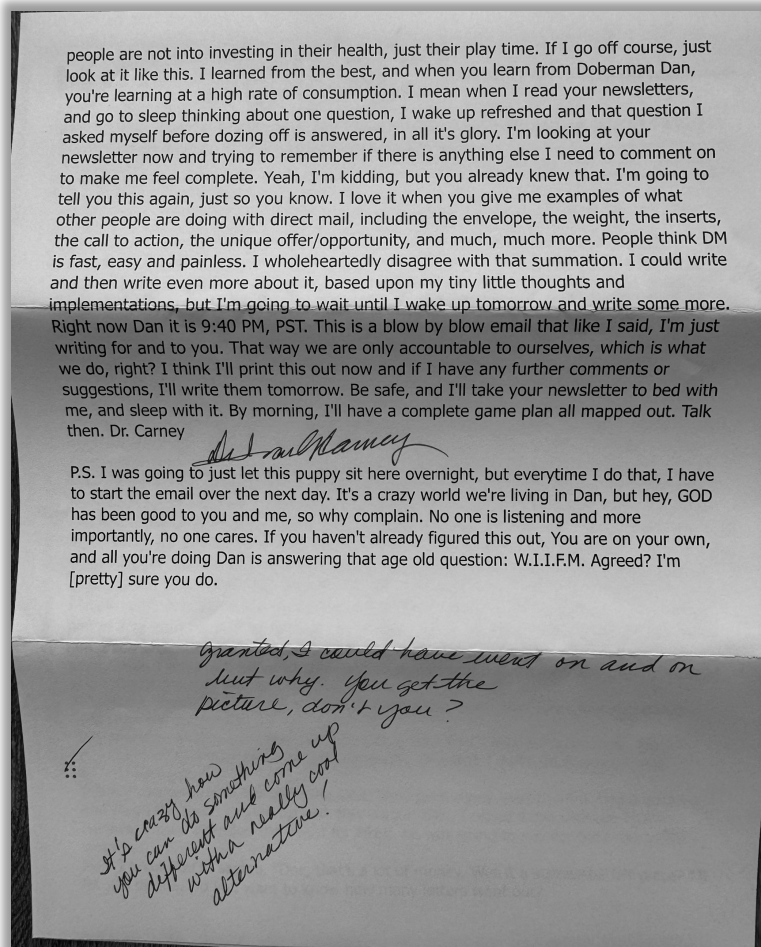 people are not into investing in their health, just their play time. If I go off course, just
look at it like this. I learned from the best, and when you learn from Doberman Dan,
you're learning at a high rate of consumption. I mean when I read your newsletters,
and go to sleep thinking about one question, I wake up refreshed and that question I
asked myself before dozing off is answered, in all it's glory. I'm looking at your
newsletter now and trying to remember if there is anything else I need to comment on
to make me feel complete. Yeah, I'm kidding, but you already knew that. I'm going to
tell you this again, just so you know. I love it when you give me examples of what
other people are doing with direct mail, including the envelope, the weight, the inserts,
the call to action, the unique offer/opportunity, and much, much more. People think DM
is fast, easy and painless. I wholeheartedly disagree with that summation. I could write
and then write even more about it, based upon my tiny little thoughts and
implementations, but I'm going to wait until I wake up tomorrow and write some more.
Right now Dan it is 9:40 PM, PST. This is a blow by blow email that like I said, I'm just
writing for and to you. That way we are only accountable to ourselves, which is what
we do, right? I think I'll print this out now and if I have any further comments or
suggestions, I'll write them tomorrow. Be safe, and I'll take your newsletter to bed with
me, and sleep with it. By morning, I'll have a complete game plan all mapped out. Talk
then. Dr. Carney
P.S. I was going to just let this puppy sit here overnight, but everytime I do that, I have
to start the email over the next day. It's a crazy world we're living in Dan, but hey, GOD
has been good to you and me, so why complain. No one is listening and more
importantly, no one cares. If you haven't already figured this out, You are on your own,
and all you're doing Dan is answering that age old question: W.I.I.F.M. Agreed? I'm
[pretty] sure you do.
granted, I could have went on and on
but why. You get the
picture, don't you?
It's crazy how
you can do something
different and come up
with a really cool
alternative!